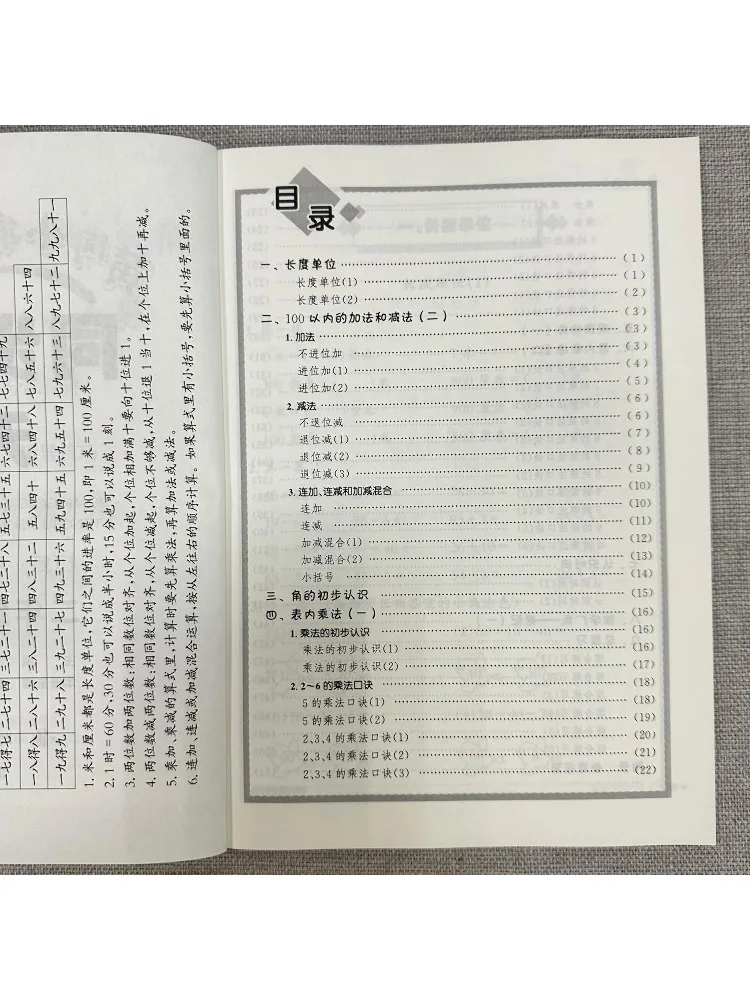 一七得七 二七十四 三七二十一 四七二十八 五七三十五 六七四十二 七七四十九
一八得八 二八十六 三八二十四 四八三十二 五八四十 六八四十八 七八五十六 八八六十四
一九得九 二九十八 三九二十七 四九三十六 五九四十五 六九五十四 七九六十三 八九七十二 九九八十一
1. 米和厘米都是长度单位,它们之间的进率是100,即1米=100厘米。
2. 1时=60分,30分也可以说成半小时,15分也可以说成1刻。
3. 两位数加两位数:相同数位对齐,从个位加起,个位相加满十要向十位进1。
4. 两位数减两位数:相同数位对齐,从个位减起,个位不够减,从十位退1当十,在个位上加十再减。
5. 乘加、乘减的算式里,计算时要先算乘法,再算加法或减法。
6. 连加、连减或加减混合运算,按从左往右的顺序计算。如果算式里有小括号,要先算小括号里面的。
目录
一、长度单位 (1)
长度单位(1) (1)
长度单位(2) (2)
二、100以内的加法和减法(二) (3)
1. 加法 (3)
不进位加 (3)
进位加(1) (4)
进位加(2) (5)
2. 减法 (6)
不退位减 (6)
退位减(1) (7)
退位减(2) (8)
退位减(3) (9)
3. 连加、连减和加减混合 (10)
连加 (10)
连减 (11)
加减混合(1) (12)
加减混合(2) (13)
小括号 (14)
三、角的初步认识 (15)
四、表内乘法(一) (16)
1. 乘法的初步认识 (16)
乘法的初步认识(1) (16)
乘法的初步认识(2) (17)
2. 2~6的乘法口诀 (18)
5的乘法口诀(1) (18)
5的乘法口诀(2) (19)
2、3、4的乘法口诀(1) (20)
2、3、4的乘法口诀(2) (21)
2、3、4的乘法口诀(3) (22)